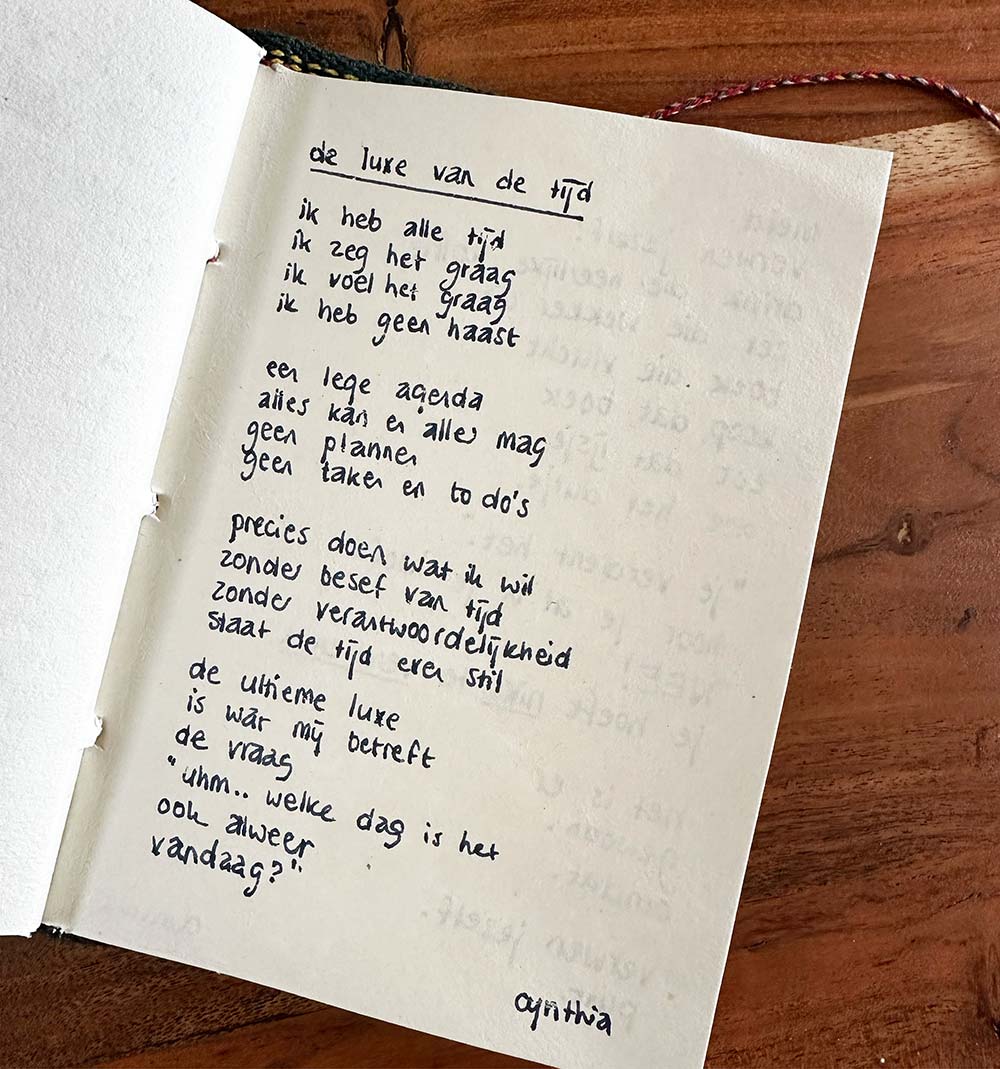 de luxe van de tijd
ik heb alle tijd
ik zeg het graag
ik voel het graag
ik heb geen haast
een lege agenda
alles kan en alles mag
geen planner
geen taken en to do's
precies doen wat ik wil
zonder besef van tijd
zonder verantwoordelijkheid
staat de tijd even stil
de ultieme luxe
is wat mij betreft
de vraag
"uhm.. welke dag is het
ook alweer
vandaag?"
cynthia